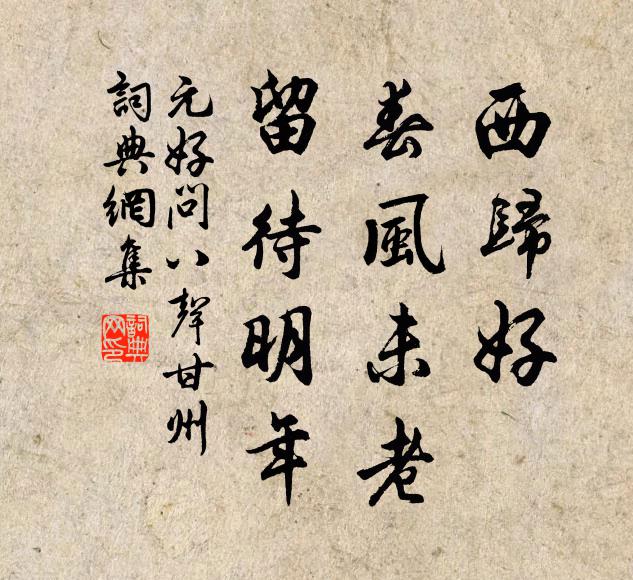 西歸好
春風未老
留待明年
元好問八聲甘州
詞典網集
詞典網印